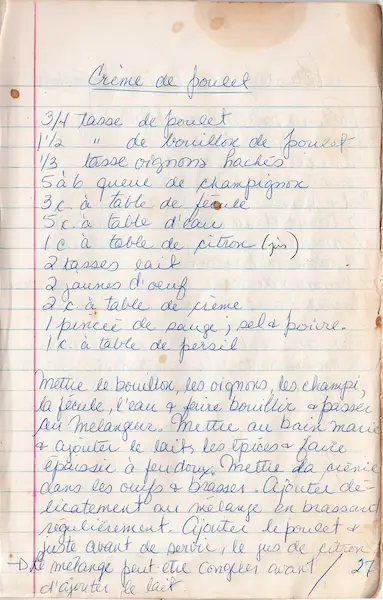 Crème de poulet
3/4 tasse de poulet
1 1/2 " de bouillon de poulet
1/3 tasse oignons hachés
5 à 6 queue de champignon
3 c. à table de fécule
5 c. à table d'eau
1 c. à table de citron (jus)
2 tasses lait
2 jaunes d'oeuf
2 c. à table de crème
1 pincée de sauge; sel & poivre.
1 c. à table de persil
Mettre le bouillon, les oignons, les champi,
la fécule, l'eau & faire bouillir & passer
au mélangeur. Mettre au bain marie
& ajouter le lait, les épices & faire
épaissir à feu doux. Mettre la crème
dans les oeufs & brasser. Ajouter dé-
licatement au mélange en brassant
régulièrement. Ajouter le poulet &
juste avant de servir, le jus de citron
→ Le mélange peut être congeler avant / 27
d'ajouter le lait.